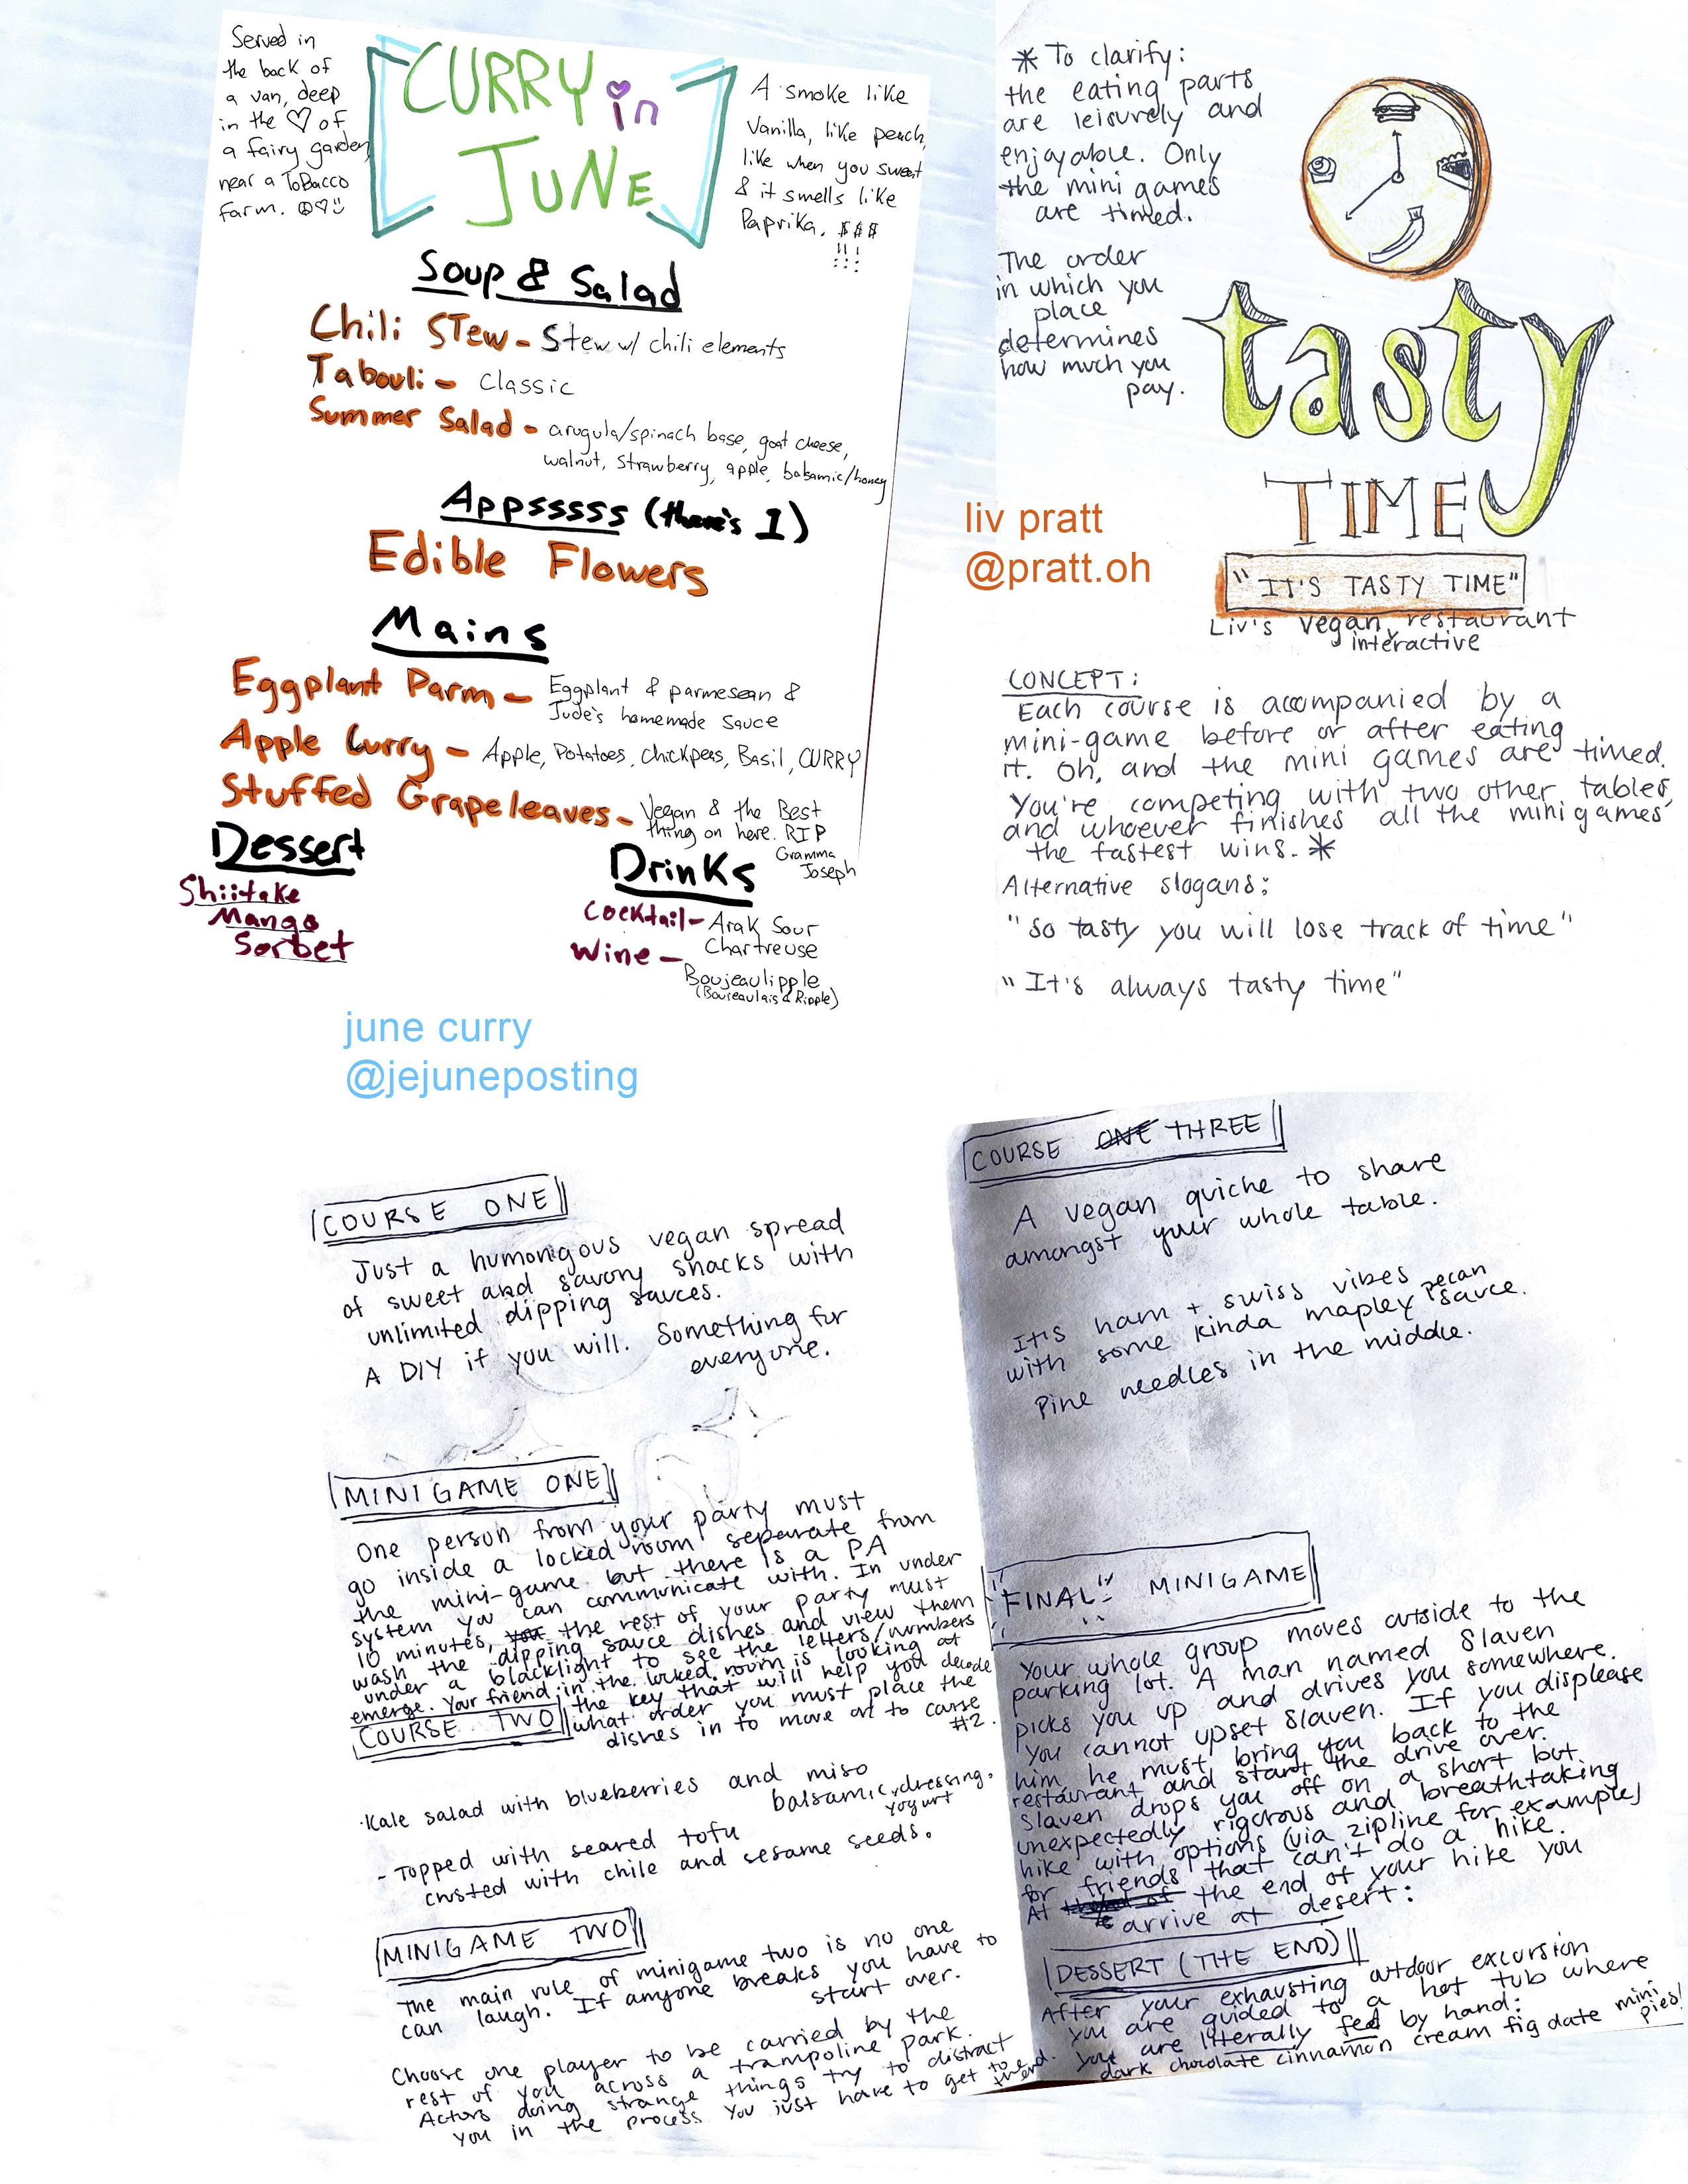 Served in
the back of
a van, deep
in the ♡ of
a fairy garden,
near a ToBacco
farm. ☮♡☺
CURRY in
JUNE
A smoke like
Vanilla, like peach,
like when you sweat
& it smells like
Paprika. $$$
!!!
Soup & Salad
Chili Stew - Stew w/ chili elements
Tabouli - Classic
Summer Salad - arugula/spinach base, goat cheese,
walnut, strawberry, apple, balsamic/honey
Appsssss (there's 1)
Edible Flowers
Mains
Eggplant Parm - Eggplant & parmesean &
Jude's homemade sauce
Apple Curry - Apple, Potatoes, Chickpeas, Basil, CURRY
Stuffed Grapeleaves - Vegan & the Best
thing on here. RIP
Gramma
Joseph
Dessert
Shiitake
Mango
Sorbet
Drinks
Cocktail - Arak Sour
Chartreuse
Wine - Boujeaulipple
(Boujeaulais & Ripple)
june curry
@jejuneposting
* To clarify:
the eating parts
are leisurely and
enjoyable. Only
the mini games
are timed.
The order
in which you
place
determines
how much you
pay.
tasty
TIME
liv pratt
@pratt.oh
"IT'S TASTY TIME"
Liv's vegan, restaurant
interactive
CONCEPT:
Each course is accompanied by a
mini-game before or after eating
it. Oh, and the mini games are timed.
You're competing with two other tables,
and whoever finishes all the minigames
the fastest wins. *
Alternative slogans:
"So tasty you will lose track of time"
"It's always tasty time"
COURSE ONE
Just a humongous vegan spread
of sweet and savory snacks with
unlimited dipping sauces.
A DIY if you will. Something for
everyone.
MINIGAME ONE
One person from your party must
go inside a locked room separate from
the mini-game but there is a PA
system you can communicate with. In under
10 minutes, you the rest of your party must
wash the dipping sauce dishes and view them
under a blacklight to see the letters/numbers
emerge. Your friend in the locked room is looking at
the key that will help you decode
what order you must place the
dishes in to move on to course
#2.
COURSE TWO
·Kale salad with blueberries and miso
balsamic dressing.
yogurt
- Topped with seared tofu
crusted with chile and sesame seeds.
MINIGAME TWO
The main rule of minigame two is no one
can laugh. If anyone breaks you have to
start over.
Choose one player to be carried by the
rest of you across a trampoline park.
Actors doing strange things try to distract
you in the process You just have to get to the
end.
COURSE ONE THREE
A vegan quiche to share
amongst your whole table.
It's ham + swiss vibes
with some kinda mapley pecan sauce.
Pine needles in the middle.
"FINAL" MINIGAME
Your whole group moves outside to the
parking lot. A man named Slaven
picks you up and drives you somewhere.
You cannot upset Slaven. If you displease
him he must bring you back to the
restaurant and start the drive over.
Slaven drops you off on a short but
unexpectedly rigorous and breathtaking
hike with options (via zipline for example)
for friends that can't do a hike.
At the end of your hike you
arrive at desert:
DESSERT (THE END)
After your exhausting outdoor excursion
you are guided to a hot tub where
you are literally fed by hand:
dark chocolate cinnamon cream fig date mini
pies!